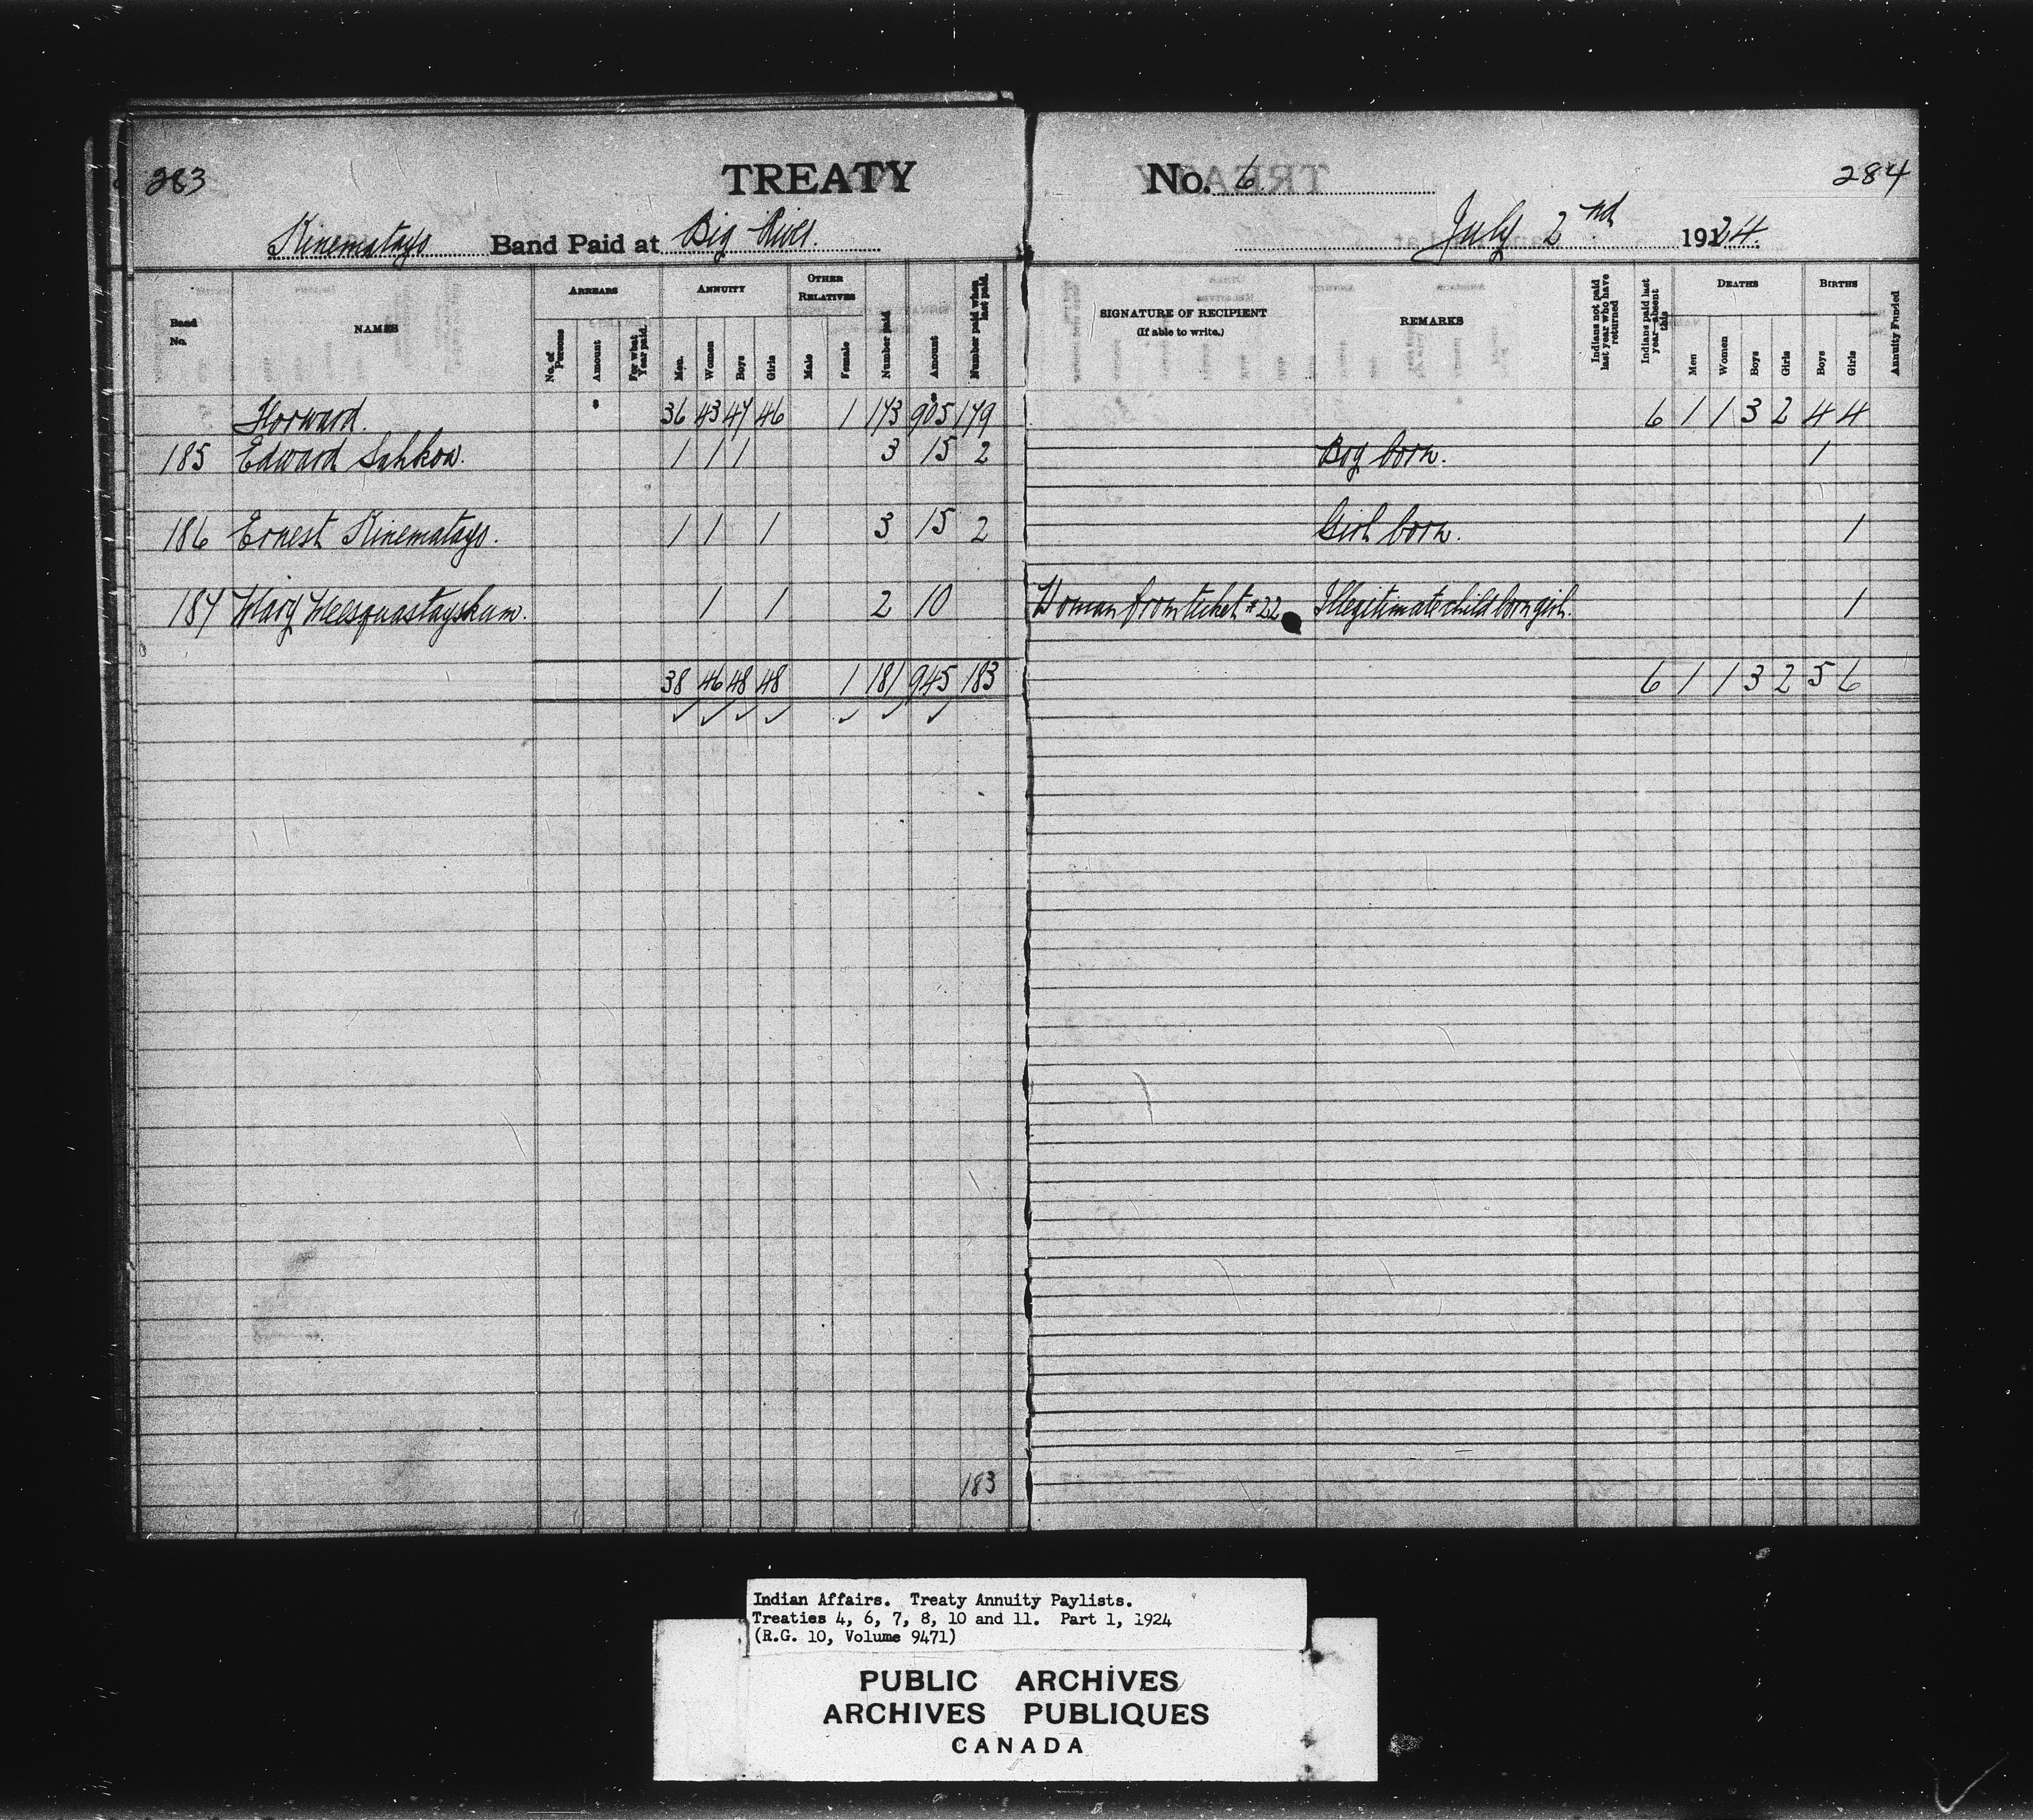 283 TREATY No. 6. 284
Kinematays Band Paid at Big River. July 2nd 1924.
Band No. NAMES ARREARS ANNUITY OTHER RELATIVES Number paid Amount Number paid when last paid. SIGNATURE OF RECIPIENT (If able to write.) REMARKS Indians not paid last year who have returned Indians paid last year—absent this DEATHS BIRTHS Annuity Funded
No. of Persons Amount For what Year paid. Men. Women Boys Girls Male Female Men Women Boys Girls Boys Girls
$ $
Forward. 36 43 47 46 1 173 905 179 6 1 1 3 2 4 4
185 Edward Sahkoa. 1 1 1 3 15 2 Boy born. 1
186 Ernest Kinematayo. 1 1 1 3 15 2 Girl born. 1
187 Mary Weesquastayskum. 1 1 2 10 Woman from ticket #22 Illegitimate child born girl. 1
38 46 48 48 1 181 945 183 6 1 1 3 2 5 6
183
Indian Affairs. Treaty Annuity Paylists.
Treaties 4, 6, 7, 8, 10 and 11. Part 1, 1924
(R.G. 10, Volume 9471)
PUBLIC ARCHIVES
ARCHIVES PUBLIQUES
CANADA